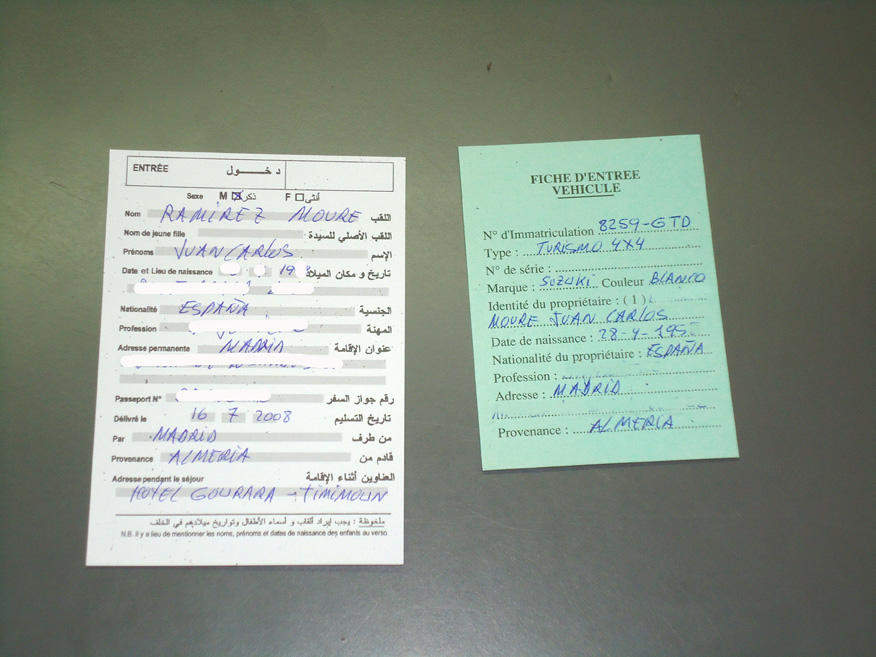 ENTRÉE دخــــول
Sexe M ☒ ذكر F ☐ أنثى
Nom RAMIREZ MOURE اللقب
Nom de jeune fille اللقب الأصلي للسيدة
Prénoms JUAN CARLOS الإسم
Date et Lieu de naissance 19 تاريخ و مكان الميلاد
Nationalité ESPAÑA الجنسية
Profession المهنة
Adresse permanente MADRID عنوان الإقامة
Passeport N° رقم جواز السفر
Délivré le 16 7 2008 تاريخ التسليم
Par MADRID من طرف
Provenance ALMERIA قادم من
Adresse pendant le séjour العناوين أثناء الإقامة
HOTEL GOURARA - TIMIMOUN
ملحوظة : يجب إيراد ألقاب و أسماء الأطفال وتواريخ ميلادهم في الخلف
N.B. Il y a lieu de mentionner les noms, prénoms et dates de naissance des enfants au verso
FICHE D'ENTREE
VEHICULE
N° d'Immatriculation 8259-GTD
Type : TURISMO 4X4
N° de série :
Marque : SUZUKI Couleur BLANCO
Identité du propriétaire : ( 1 )
MOURE JUAN CARLOS
Date de naissance : 28-4-195
Nationalité du propriétaire : ESPAÑA
Profession :
Adresse : MADRID
Provenance : ALMERIA